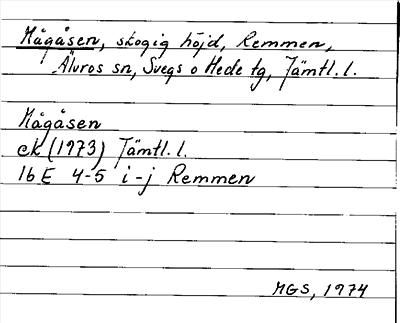 Mågåsen, skogig höjd, Remmen,
Älvros sn, Svegs o Hede tg, Jämtl. l.
Mågåsen
ek (1973) Jämtl. l.
16E 4-5 i-j Remmen
MGS, 1974